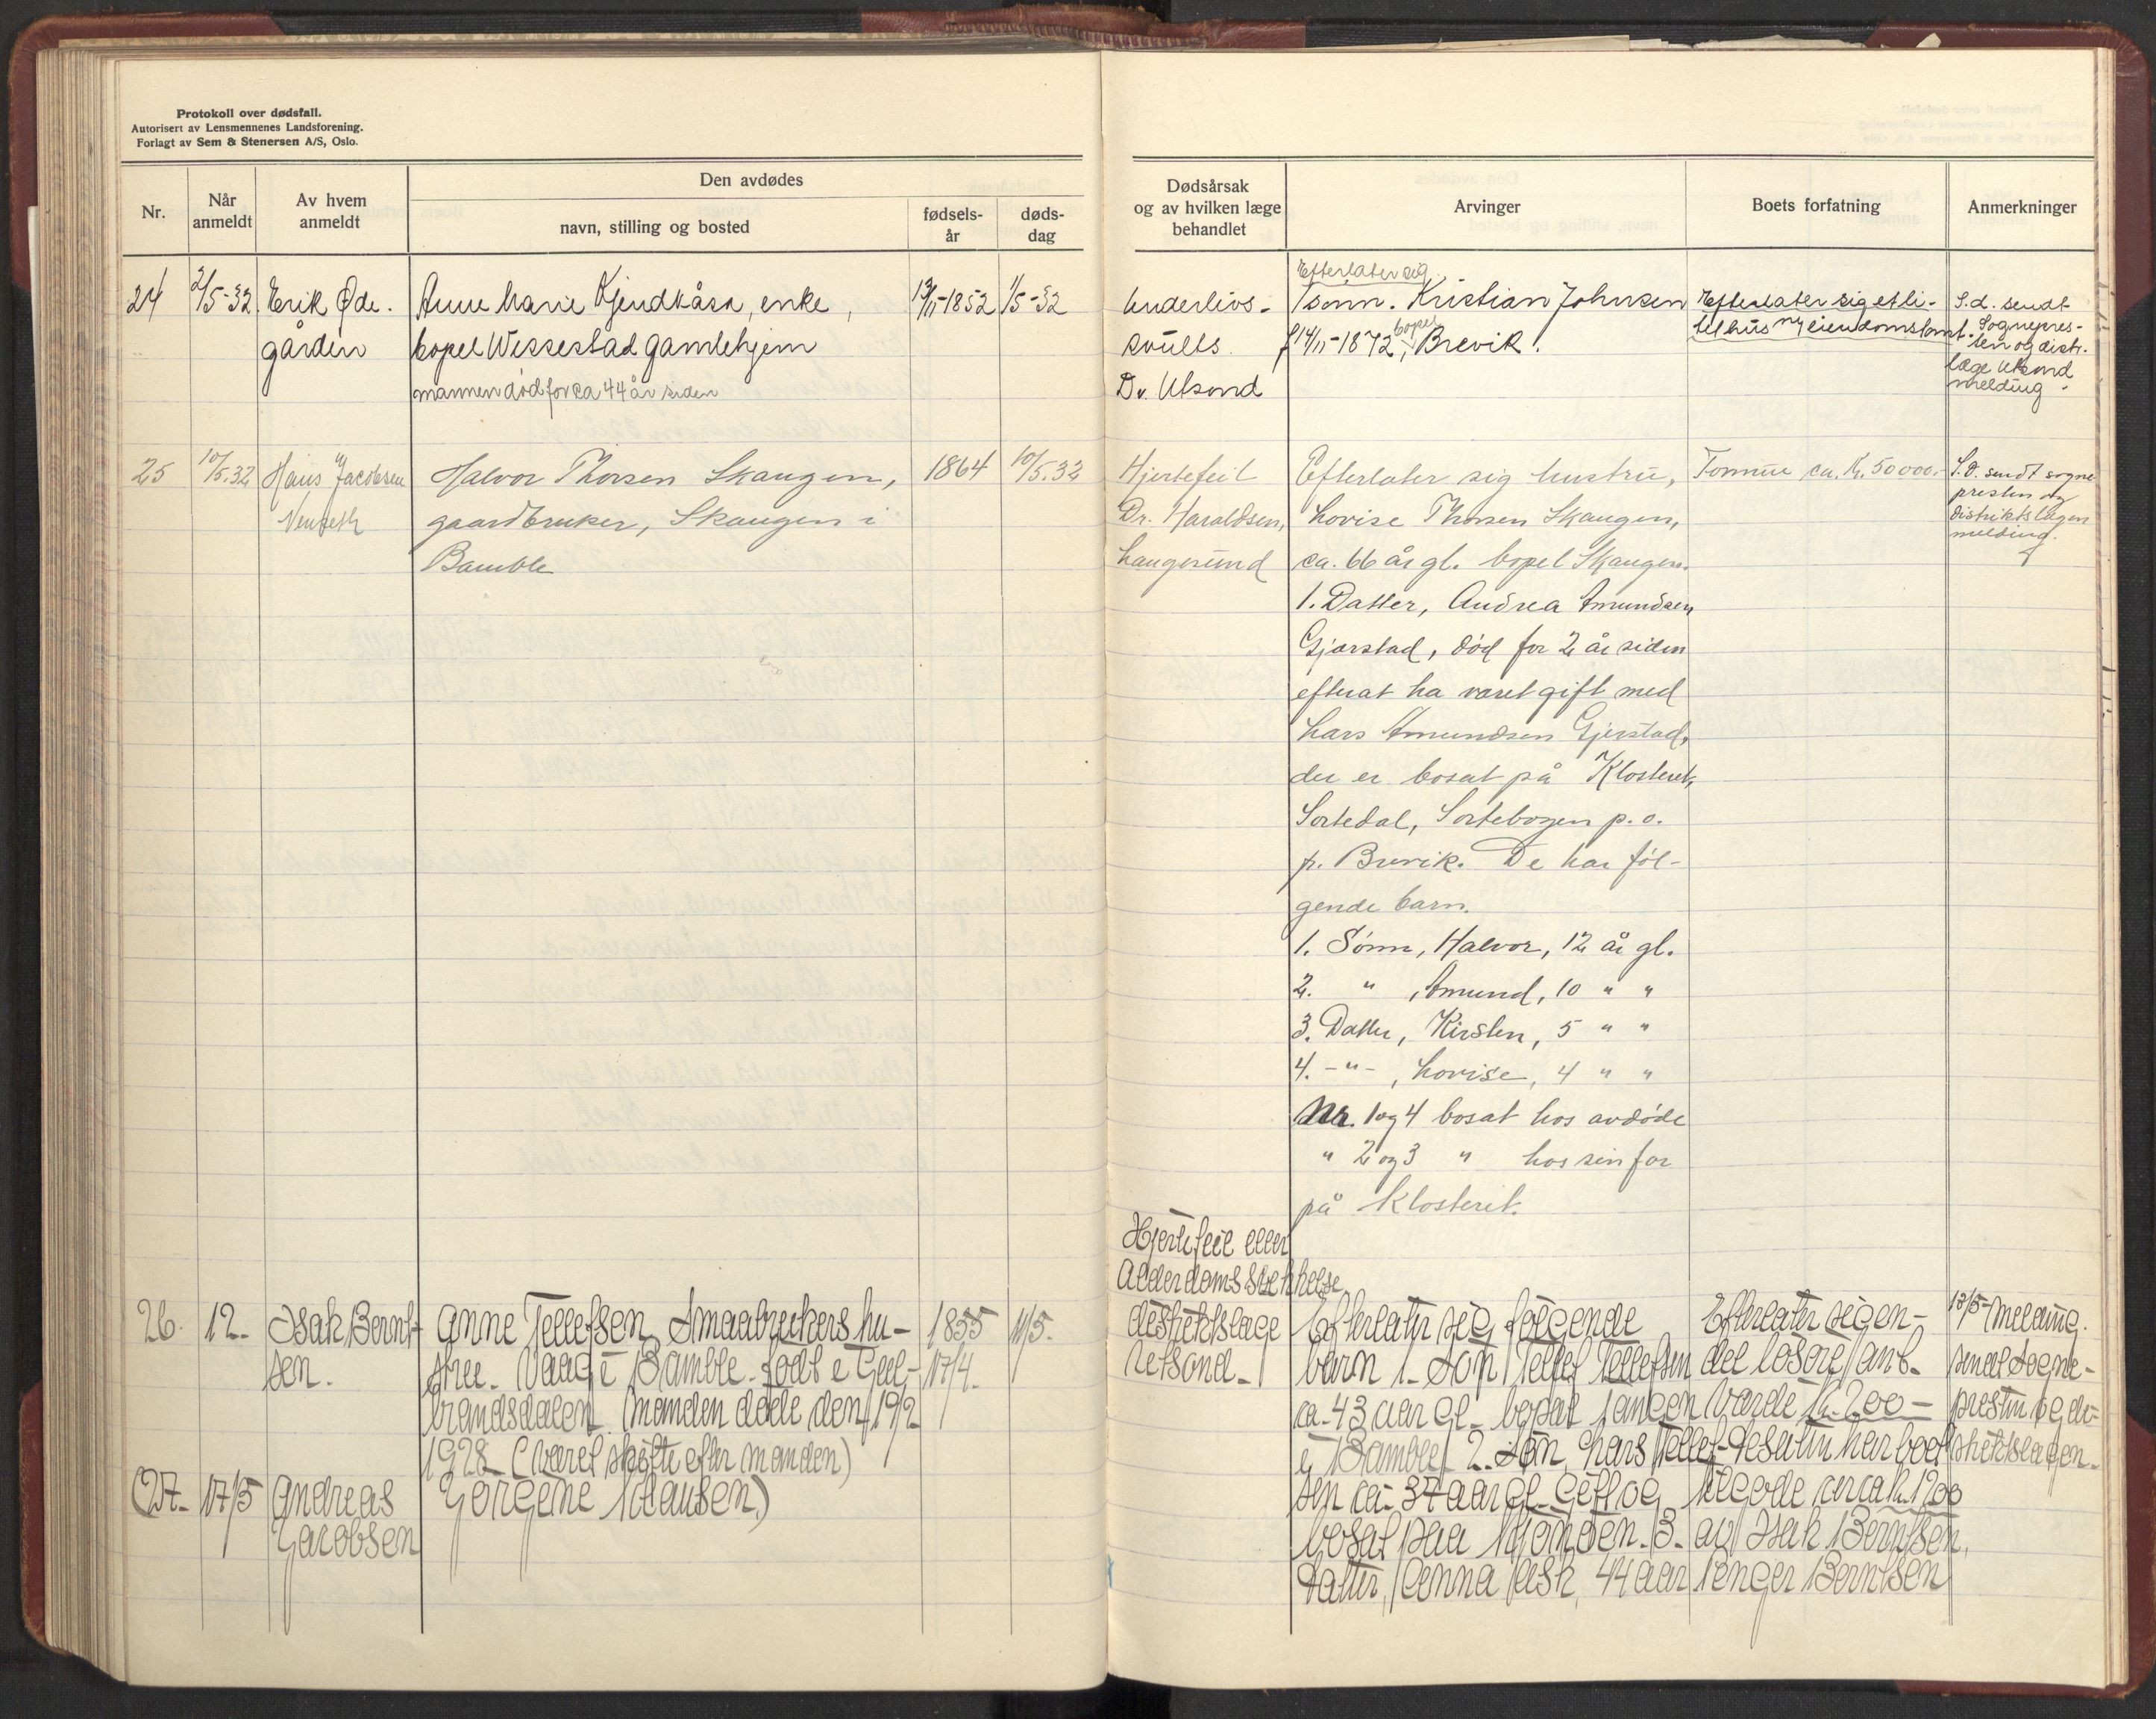 Protokoll over dødsfall.
Autorisert av Lensmennenes Landsforening.
Forlagt av Sem & Stenersen A/S, Oslo.
Nr.
Når anmeldt
Av hvem anmeldt
Den avdødes
navn, stilling og bosted
fødsels-år
døds-dag
Dødsårsak og av hvilken læge behandlet
Arvinger
Boets forfatning
Anmerkninger
24
2/5-32
Erik Øde-
gården
Anne Marie Kjendkåsa, enke,
bopel Wissestad Gamlehjem
mannen død for ca 44 år siden
1852
1/5-32
Underlivs-
svulst.
Dr. Ulsond
Efterlater sig
1 sønn. Kristian Johnsen
f 14/11-1872, bopel Brevik.
Efterlater sig et li-
tet hus
S.d. sendt
Sognepres-
ten og distr.
læge Ulsond
melding.
25
10/5.32
Hans Jacobsen
Halvor Thorsen Skaugen,
gaardbruker, Skaugen i
Bamble
1864
10/5.32
Hjertefeil
Dr. Haraldsen,
Langesund
Efterlater sig hustru,
Lovise Thorsen Skaugen,
ca. 66 år gl. bopel Skaugen.
1. Datter, Andrea Amundsen
Gjerstad, død for 2 år siden
efterat ha været gift med
Lars Amundsen Gjerstad,
der er bosat på Klosteret,
Sortedal, Sortebogen p.o.
p. Brevik. De har føl-
gende barn.
1. Sønn, Halvor, 12 år gl.
2. " , Amund, 10 " "
3. Datter, Kirsten, 5 " "
4. -"- , Lovise, 4 " "
Nr. 1 og 4 bosat hos avdøde
" 2 og 3 " hos sin far
på Klosteret.
Formue ca. Kr. 50000.-
S.d. sendt sogne
presten og
distriktslægen
melding.
Hjertefeil eller
Alderdomssvekkelse
26.
12.
Isak Bernt-
sen.
Anne Tellefsen Smaabrukers hu-
stru. Vaag i Bamble. født i Gul-
brandsdalen. Manden døde den 19/2
1928 (været skifte efter manden)
1855
17/4.
11/5.
destriktslæge
Ulsond.
Efterlater sig følgende
barn 1. Søn Tellef Tellefsen
ca. 43 aar gl. bosat Langen
i Bamble 2. Søn, Lars Tellef-
sen ca. 37 aar gl. Gift og
bosat paa
3.
Datter, Anna Ask, 44 aar
Efterlater sig en-
del løsøre ant.
Værde kr. 200 —
Desuten har boet
tilgode circa kr. 1200
av Isak Berntsen,
Berntsen
13/5 Melding
sendt Sogne-
presten og di-
striktslægen.
(27.
17/5
Andreas
Jacobsen
Jørgine Klausen)